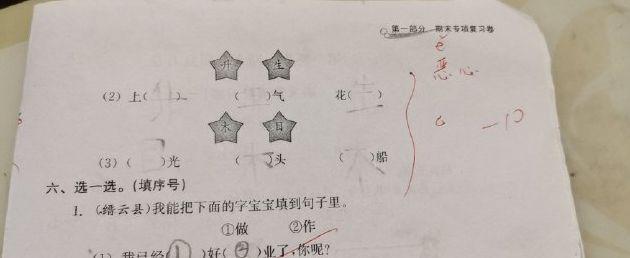 第一部分 期末专项复习卷
è
恶心
升 生
(2) 上( ) ( )气 花( )
木 目
(3) ( )光 ( )头 ( )船
六、选一选。(填序号)
1. (缙云县)我能把下面的字宝宝填到句子里。
①做 ②作
(1) 我已经(①)好(②)业了,你呢?